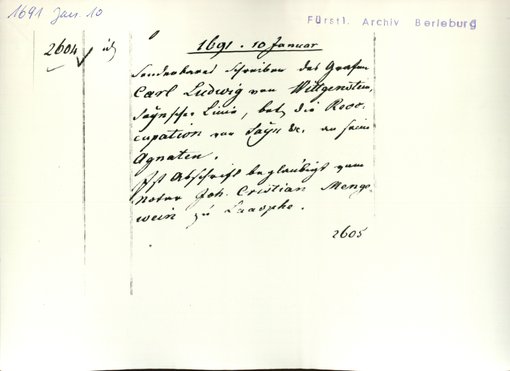 1691 Jan. 10
Fürstl. Archiv Berleburg
2604
1691. 10 Januar
Sonderbares Schreiben des Grafen
Carl Ludwig von Wittgenstein,
Sayn'scher Linie, betr. die Reoc-
cupation von Sayn &c. an seine
Agnaten.
Ist Abschrift beglaubigt vom
Notar Joh. Cristian Menge-
wein zu Laasphe.
2605